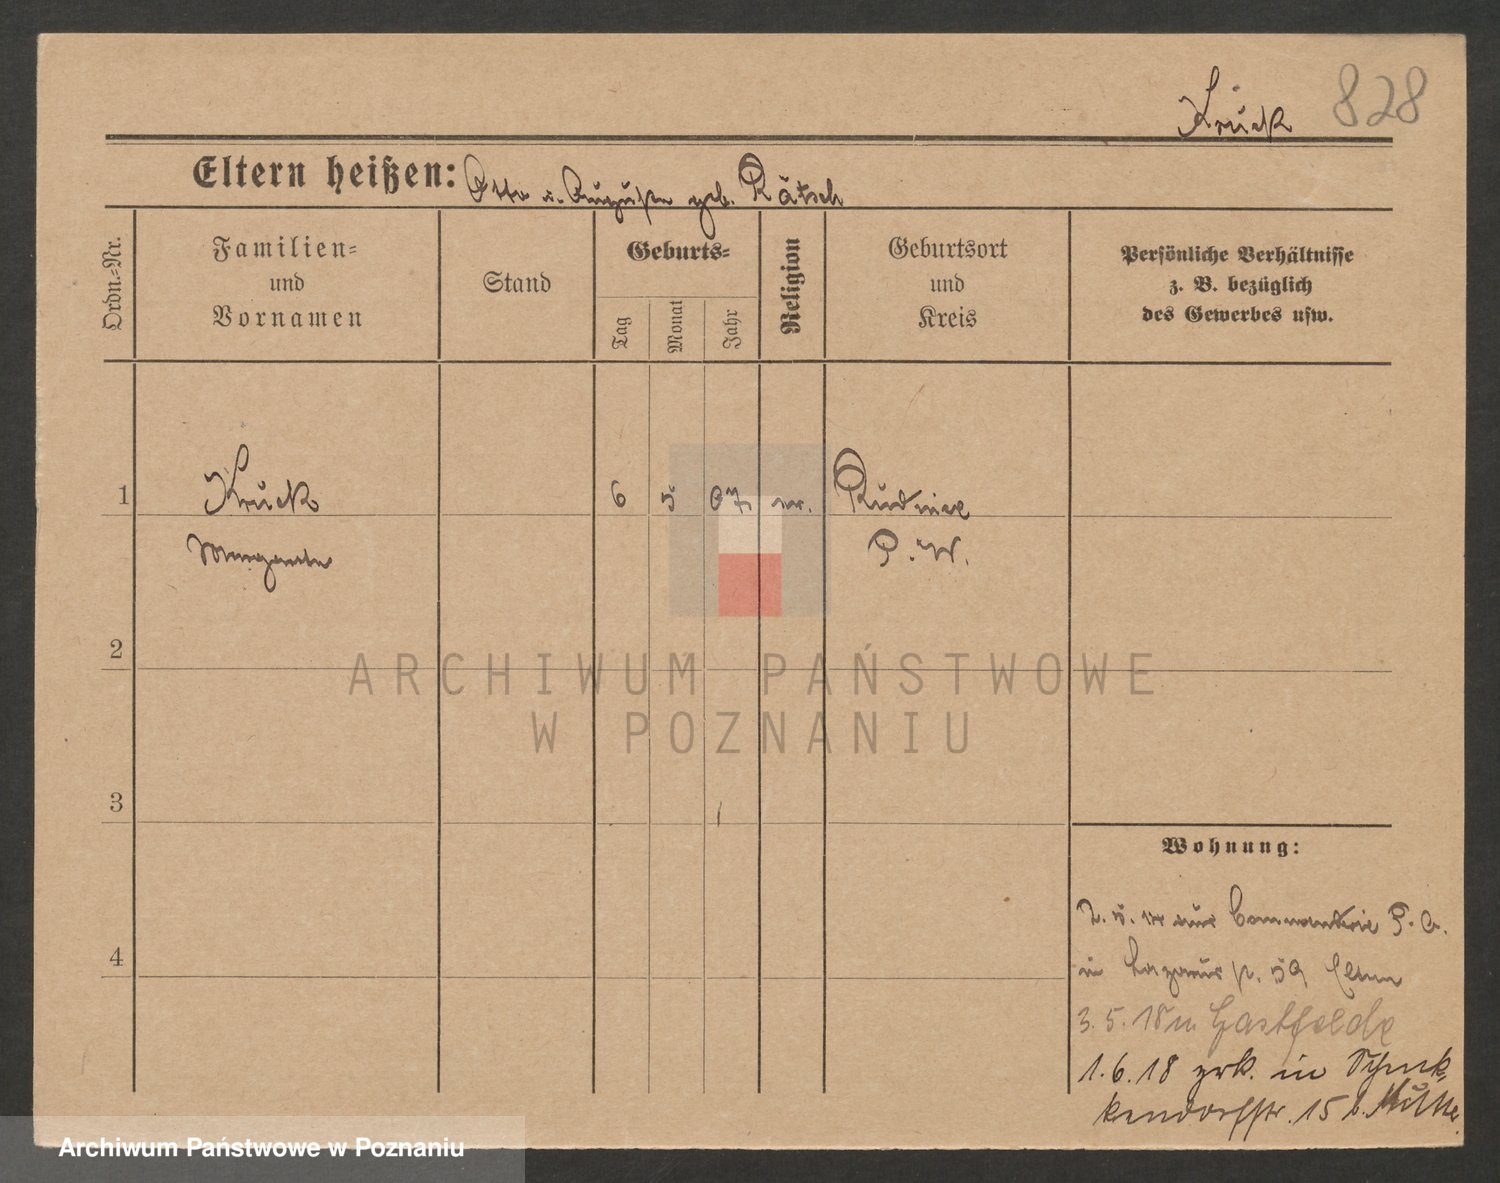 Kruck 828
Eltern heißen: Otto u. Auguste geb. Rätsch
Ordn.=Nr.
Familien=
und
Vornamen
Stand
Geburts=
Tag
Monat
Jahr
Religion
Geburtsort
und
Kreis
Persönliche Verhältnisse
z. B. bezüglich
des Gewerbes usw.
1 Kruck 6 5 07 ev. Rudnicze
Margarete P. W.
2
3
4
Wohnung:
P. O.
in Lazarus p. 59 Eltern
3. 5. 18 n. Gastfelde
1. 6. 18 zrk. in Schenk,
kendorfstr. 15 b. Mutter
ARCHIWUM PAŃSTWOWE
W POZNANIU
Archiwum Państwowe w Poznaniu